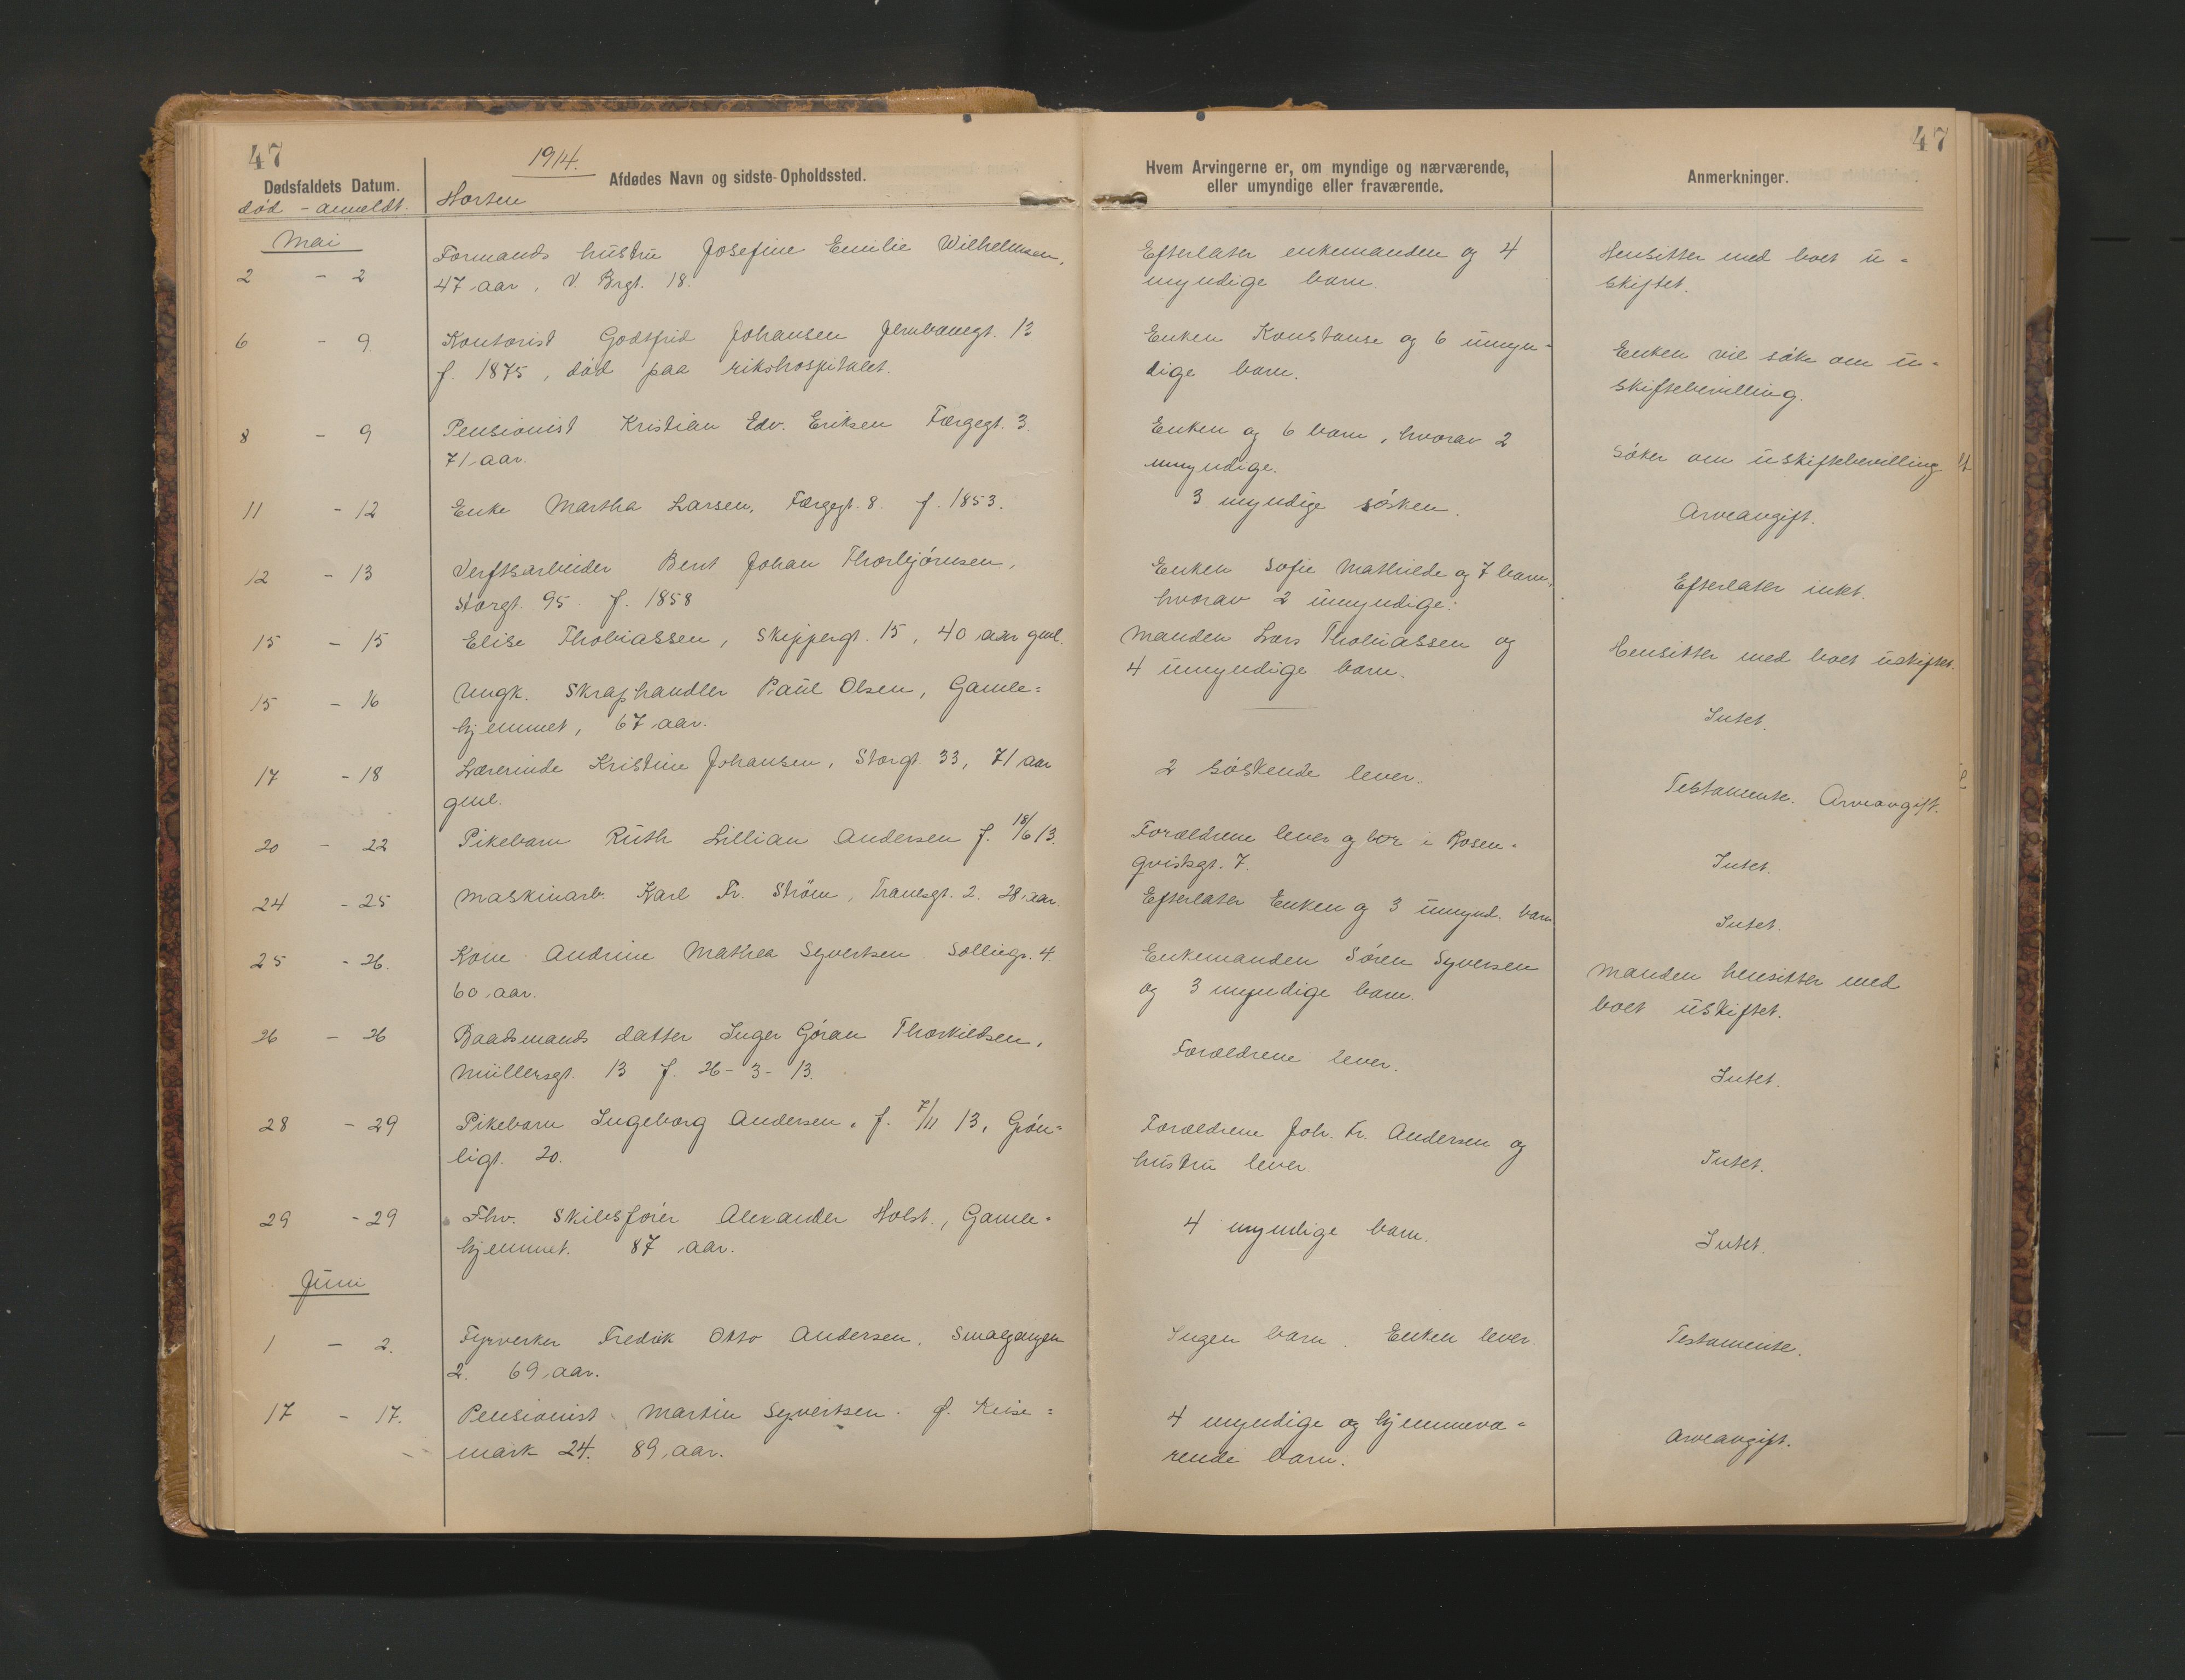 47
1914.
Dødsfaldets Datum.
Afdødes Navn og sidste Opholdssted.
død - anmeldt.
Horten
Hvem Arvingerne er, om myndige og nærværende,
eller umyndige eller fraværende.
Anmerkninger.
47
Mai
2 - 2
Formands hustru Josefine Emilie Wilhelmsen,
47 aar, V. Brgt. 18.
Efterlater enkemanden og 4
myndige barn.
Hensitter med boet u-
skiftet.
6 - 9.
Kontorist Godtfred Johansen Jernbanegt. 12
f. 1875, død paa rikshospitalet.
Enken Konstanse og 6 umyn-
dige barn.
Enken vil søke om u-
skiftebevilling.
8 - 9
Pensionist Kristian Edv. Eriksen Færgegt. 3.
71 aar.
Enken og 6 barn, hvorav 2
umyndige.
Søker om uskiftebevilling
11 - 12
Enke Martha Larsen, Færgegt. 8. f. 1853.
3 myndige søsken.
Arveavgift.
12 - 13
Verftsarbeider Bent Johan Thorbjörnsen,
Storgt. 95. f. 1858
Enken Sofie Mathilde og 7 barn,
hvorav 2 umyndige.
Efterlater intet.
15 - 15
Elise Thobiassen, Skippergt. 15, 40 aar gml.
Manden Lars Thobiassen og
4 umyndige barn.
Hensitter med boet uskiftet.
15 - 16
Ungk. Skraphandler Paul Olsen, Gamle=
hjemmet, 67 aar.
Intet.
17 - 18
Lærerinde Kristine Johansen, Storgt. 33, 71 aar
gml.
2 søskende lever.
Testamente. Arveavgift.
20 - 22
Pikebarn Ruth Lillian Andersen f. 18/6 13.
Forældrene lever og bor i Rosen-
qvistsgt. 7.
Intet.
24 - 25
Maskinarb. Karl Fr. Strøm, Tranesgt. 2. 28 aar.
Efterlater Enken og 3 umynd. barn
Intet.
25 - 26.
Kone Andrine Mathea Syvertsen Sollings. 4.
60 aar.
Enkemanden Søren Syversen
og 3 myndige barn.
Manden hensitter med
boet uskiftet.
26 - 26
Baadsmands datter Inger Göran Thorkildsen,
Müllersgt. 13 f. 26-3-13.
Forældrene lever.
Intet.
28 - 29
Pikebarn Ingeborg Andersen, f. 7/11 13, Grøn=
ligt. 20.
Forældrene Joh. Fr. Andersen og
hustru lever.
Intet.
29 - 29
Fhv. Skibsfører Alexander Holst., Gamle=
hjemmet. 87 aar.
4 myndige barn.
Intet.
Juni
1 - 2.
Fyrverker Fredrik Otto Andersen, Smalgangen
2. 69 aar.
Ingen barn. Enken lever.
Testamente.
17 - 17.
Pensionist Martin Syvertsen. Ø. Keise=
mark 24. 89 aar.
4 myndige og hjemmeva-
rende barn.
Arveavgift.